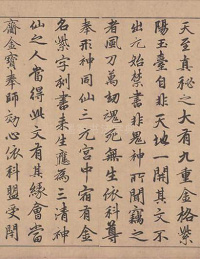 天至真秘之大有九重金格紫
陽玉臺自非天地一開其文不
出元始禁書非鬼神所聞竊之
者風刀萬劫魂死無生依科尊
奉形神同仙三元宮中宿有金
名紫字刻書來生應為三清神
仙之人當得此文有其緣會當
齎金寶奉師効心依科盟受閉